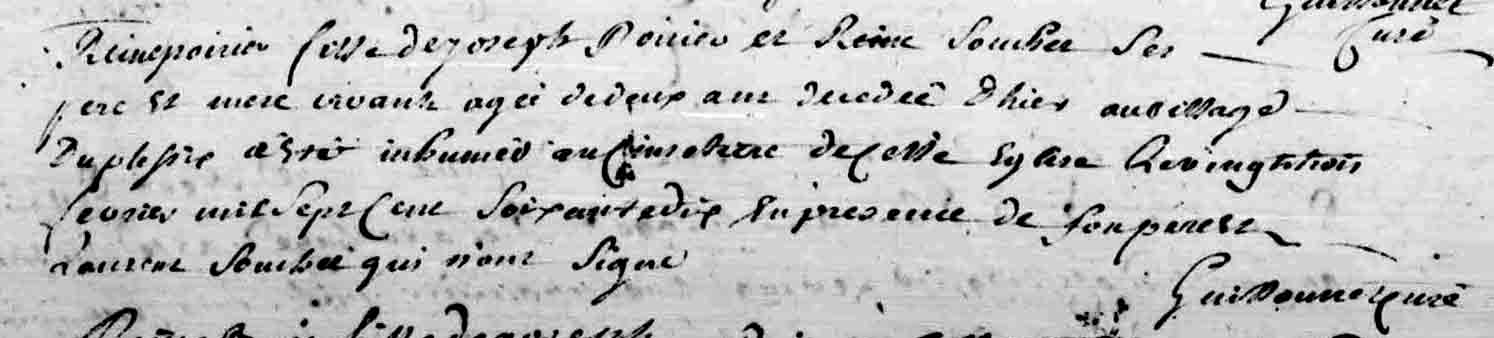 Guillonnet
Curé
Reine poirier fille de joseph Poirier et Reine Souchet Ses
pere et mere vivant agée de deux ans decedeé d'hier au village
Duplessix a été inhumeé au Cimetierre de cette Eglise Le vingt trois
fevrier mil Sept Cent Soixante dix En presence de son pere et
Laurent Souchet qui n'ont Signé
Guillonnet curé